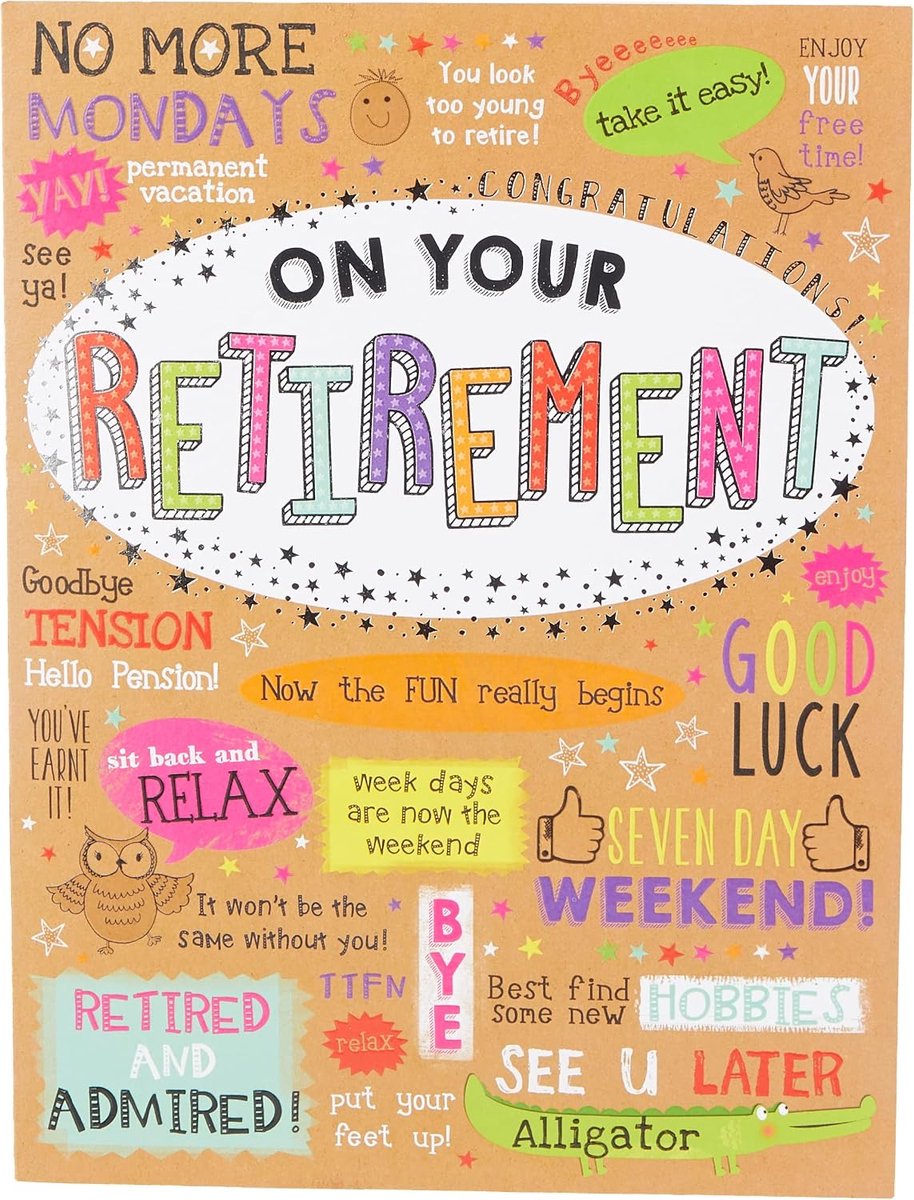 NO MORE
MONDAYS
You look
too young
to retire!
Byeeeeeee
take it easy!
ENJOY
YOUR
free
time!
YAY!
permanent
vacation
see
ya!
CONGRATULATIONS!
ON YOUR
RETIREMENT
Goodbye
TENSION
Hello Pension!
enjoy
GOOD
LUCK
Now the FUN really begins
YOU'VE
EARNT
IT!
sit back and
RELAX
Week days
are now the
weekend
SEVEN DAY
WEEKEND!
It won't be the
same without you!
BYE
TTFN
Best find
some new
HOBBIES
RETIRED
AND
ADMIRED!
relax
put your
feet up!
SEE U LATER
Alligator